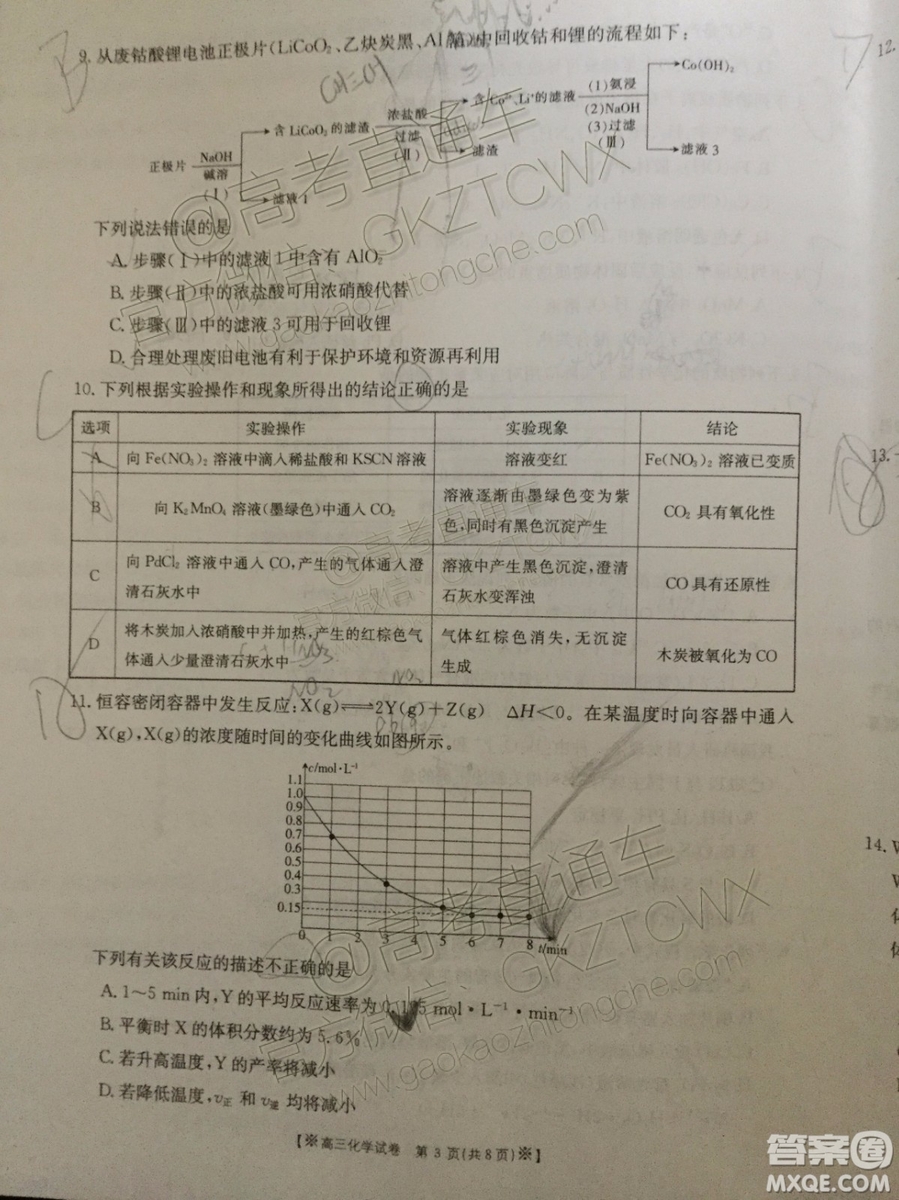 9. 从废钴酸锂电池正极片(LiCoO₂、乙炔炭黑、Al箔)中回收钴和锂的流程如下:
正极片
NaOH
碱溶
(Ⅰ)
含 LiCoO₂ 的滤渣
滤液 1
浓盐酸
过滤
(Ⅱ)
含 Co²⁺、Li⁺的滤液
滤渣
(1)氨浸
(2)NaOH
(3)过滤
(Ⅲ)
Co(OH)₂
滤液 3
下列说法错误的是
A. 步骤(Ⅰ)中的滤液 1 中含有 AlO₂⁻
B. 步骤(Ⅱ)中的浓盐酸可用浓硝酸代替
C. 步骤(Ⅲ)中的滤液 3 可用于回收锂
D. 合理处理废旧电池有利于保护环境和资源再利用
10. 下列根据实验操作和现象所得出的结论正确的是
选项 实验操作 实验现象 结论
A 向 Fe(NO₃)₂ 溶液中滴入稀盐酸和 KSCN 溶液 溶液变红 Fe(NO₃)₂ 溶液已变质
B 向 K₂MnO₄ 溶液(墨绿色)中通入 CO₂ 溶液逐渐由墨绿色变为紫
色,同时有黑色沉淀产生 CO₂ 具有氧化性
C 向 PdCl₂ 溶液中通入 CO,产生的气体通入澄
清石灰水中 溶液中产生黑色沉淀,澄清
石灰水变浑浊 CO 具有还原性
D 将木炭加入浓硝酸中并加热,产生的红棕色气
体通入少量澄清石灰水中 气体红棕色消失,无沉淀
生成 木炭被氧化为 CO
11. 恒容密闭容器中发生反应:X(g)⇌2Y(g)+Z(g) ΔH<0。在某温度时向容器中通入
X(g),X(g)的浓度随时间的变化曲线如图所示。
c/mol·L⁻¹
1.1
1.0
0.9
0.8
0.7
0.6
0.5
0.4
0.3
0.15
0 1 2 3 4 5 6 7 8 t/min
下列有关该反应的描述不正确的是
A. 1~5 min 内,Y 的平均反应速率为 mol·L⁻¹·min⁻¹
B. 平衡时 X 的体积分数约为 5.6%
C. 若升高温度,Y 的产率将减小
D. 若降低温度,v正 和 v逆 均将减小
【※高三化学试卷 第 3 页(共 8 页)※】
12.
13.
14.
@高考直通车
官方微信:GKZTCWX
www.gaokaozhitongche.com
@高考直通车
官方微信:GKZTCWX
www.gaokaozhitongche.com
答案圈
MXQE.COM